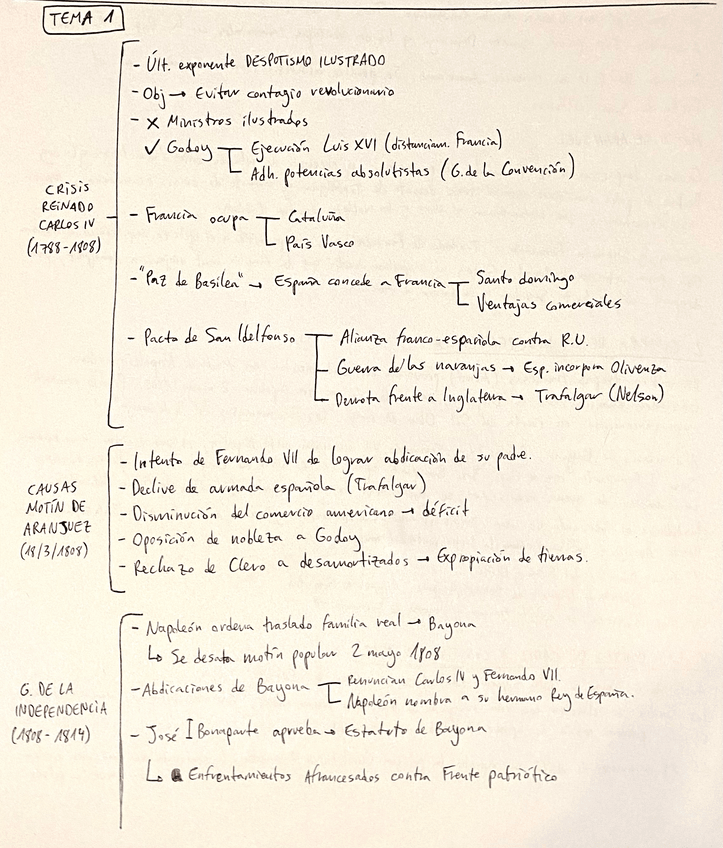 TEMA 1
CRISIS
REINADO
CARLOS IV
(1788-1808)
- Últ. exponente DESPOTISMO ILUSTRADO
- Obj → Evitar contagio revolucionario
- x Ministros ilustrados
✓ Godoy
Ejecución Luis XVI (distanciam. Francia)
Adh. potencias absolutistas (G. de la Convención)
- Francia ocupa
Cataluña
País Vasco
- "Paz de Basilea" → España concede a Francia
Santo domingo
Ventajas comerciales
- Pacto de San Ildelfonso
Alianza franco-española contra R.U.
Guerra de las naranjas → Esp. incorpora Olivenza
Derrota frente a Inglaterra → Trafalgar (Nelson)
CAUSAS
MOTÍN DE
ARANJUEZ
(18/3/1808)
- Intento de Fernando VII de lograr abdicación de su padre.
- Declive de armada española (Trafalgar)
- Disminución del comercio americano → déficit
- Oposición de nobleza a Godoy
- Rechazo de Clero a desamortizados → Expropiación de tierras.
G. DE LA
INDEPENDENCIA
(1808-1814)
- Napoleón ordena traslado familia real → Bayona
↳ Se desata motín popular 2 mayo 1808
- Abdicaciones de Bayona
Renuncian Carlos IV y Fernando VII.
Napoleón nombra a su hermano Rey de España.
- José I Bonaparte aprueba → Estatuto de Bayona
↳ Enfrentamientos Afrancesados contra Frente patriótico